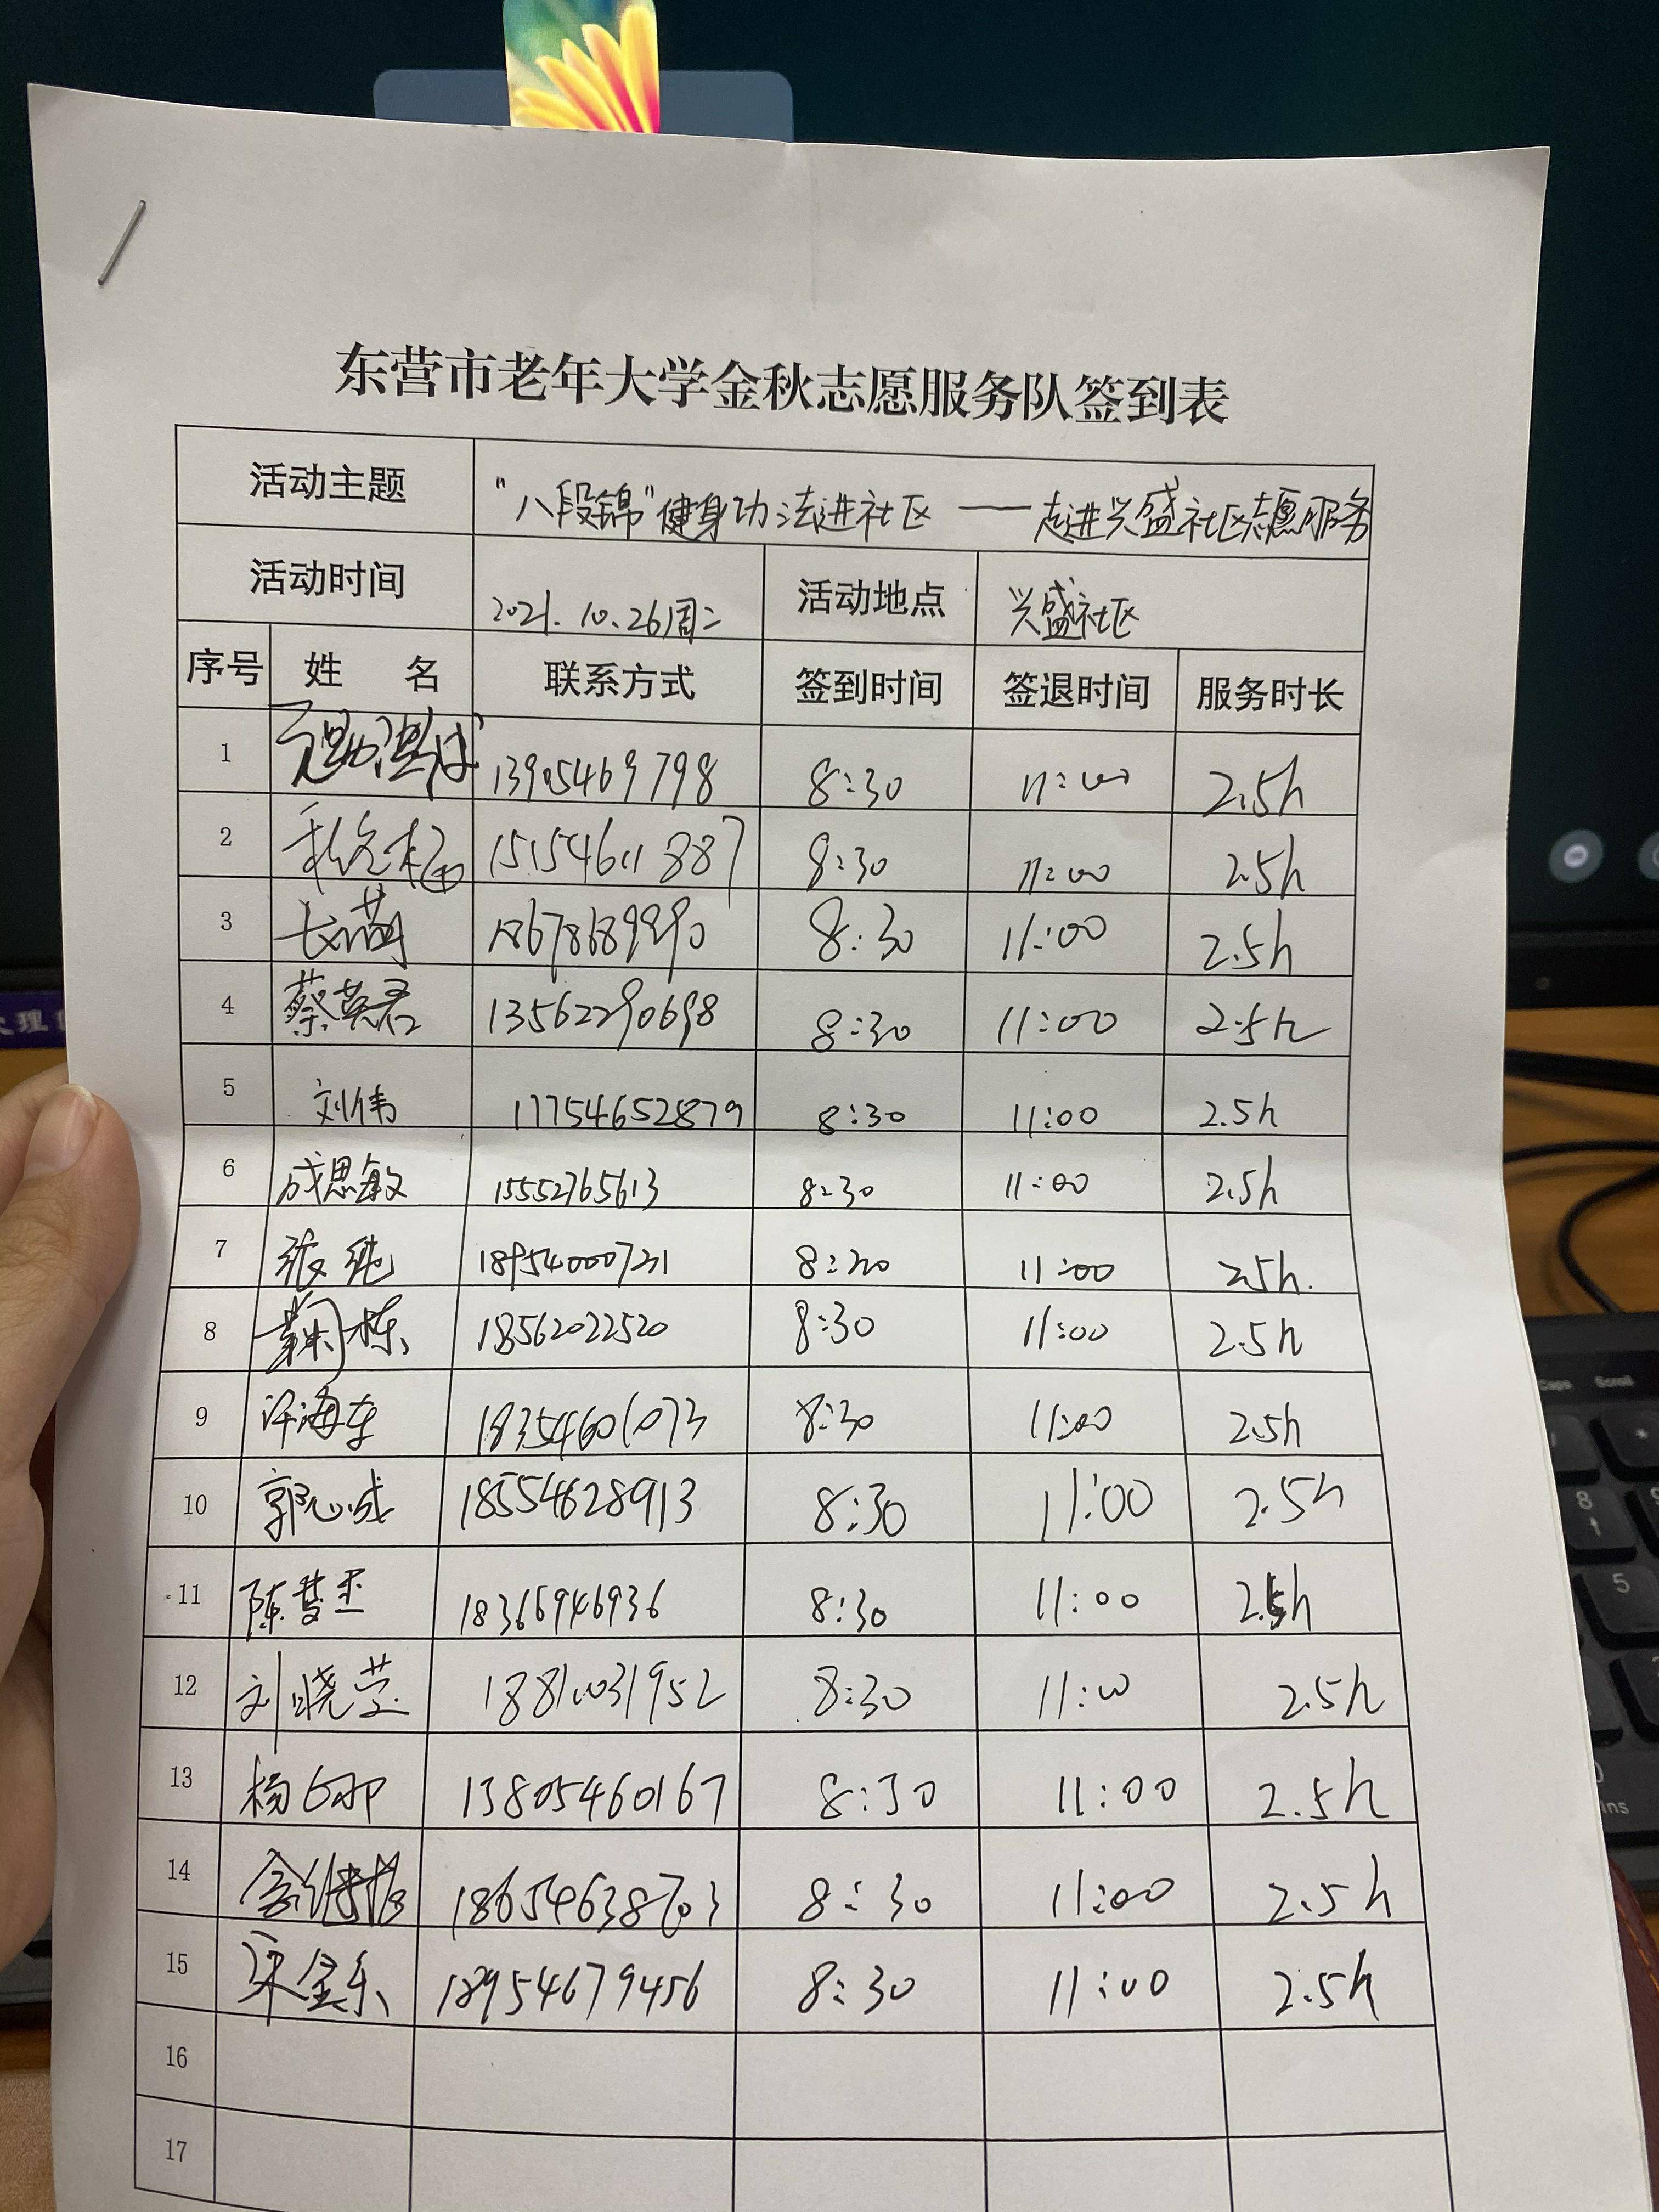 东营市老年大学金秋志愿服务队签到表
活动主题 "八段锦"健身功法进社区 —— 走进兴盛社区志愿服务
活动时间 2021.10.26周二 活动地点 兴盛社区
序号 姓 名 联系方式 签到时间 签退时间 服务时长
1 13905469798 8:30 11:00 2.5h
2 15154611887 8:30 11:00 2.5h
3 18678689990 8:30 11:00 2.5h
4 蔡英君 13562290698 8:30 11:00 2.5h
5 刘伟 17754652879 8:30 11:00 2.5h
6 成思敏 15552765613 8:30 11:00 2.5h
7 张纯 8:30 11:00 2.5h.
8 鞠栋 18562022520 8:30 11:00 2.5h
9 许海东 18354601073 8:30 11:00 2.5h
10 郭心成 18554628913 8:30 11:00 2.5h
11 陈慧玉 18365946936 8:30 11:00 2.5h
12 刘晓莹 18810031952 8:30 11:00 2.5h
13 杨 13805460167 8:30 11:00 2.5h
14 18654638703 8:30 11:00 2.5h
15 宋金东 18954679456 8:30 11:00 2.5h
16
17